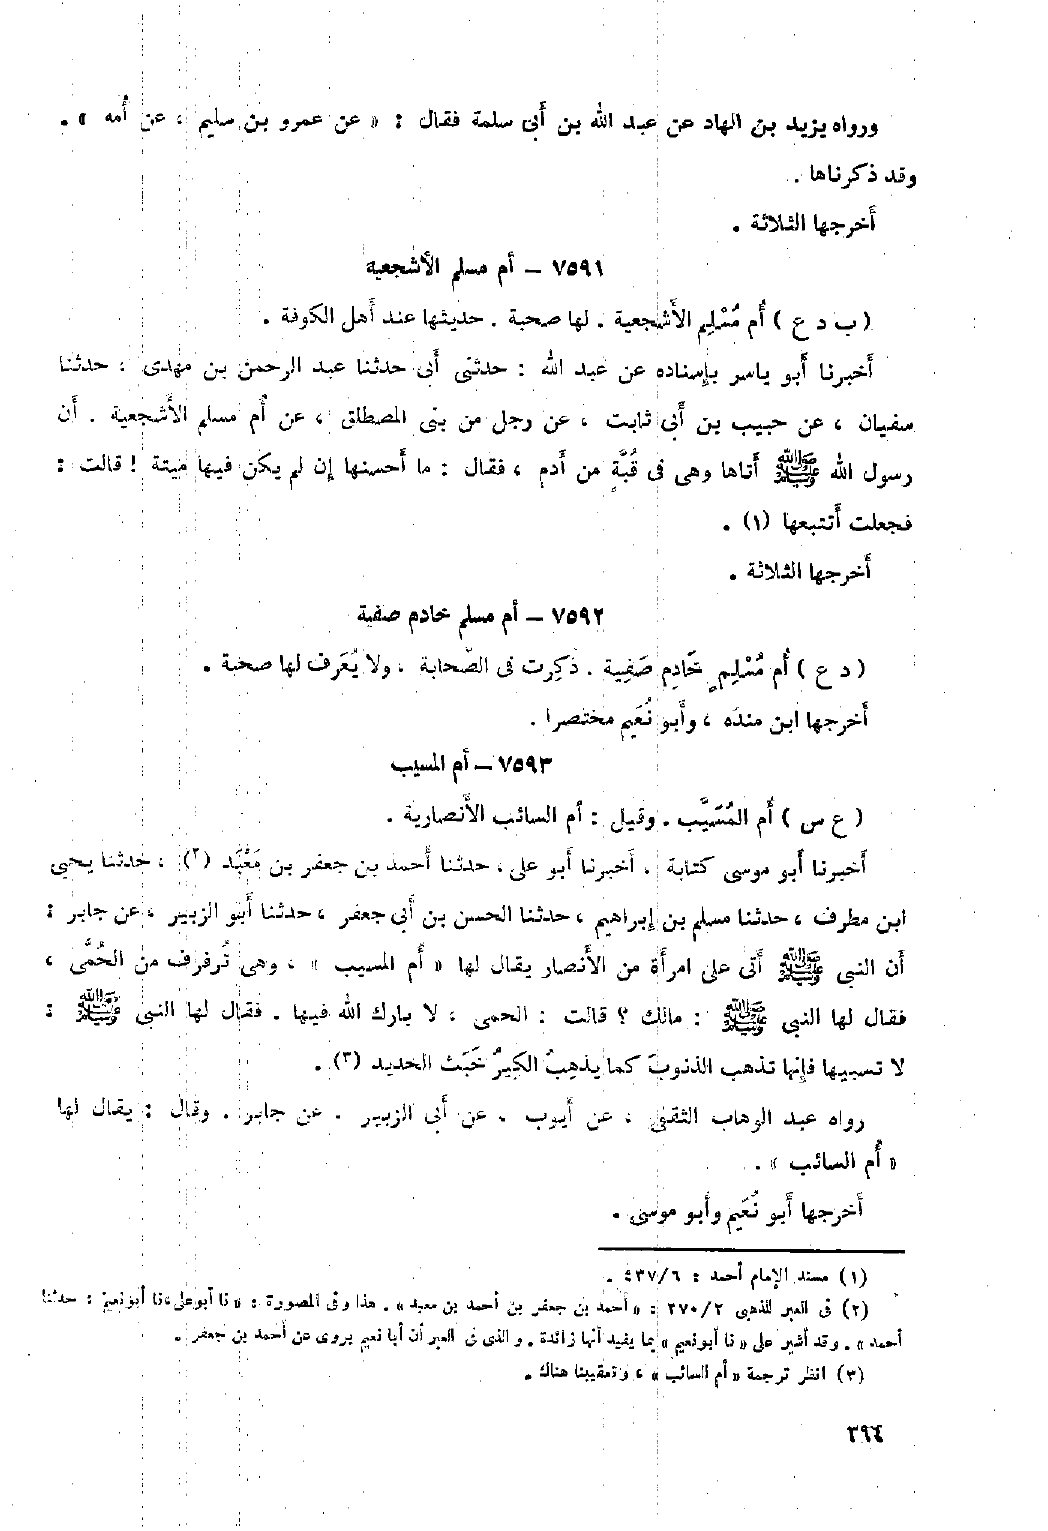 ورواه يزيد بن الهاد عن عبد الله بن أبى سلمة فقال : « عن عمرو بن سليم ، عن أُمه » .
وقد ذكرناها .
أخرجها الثلاثة .
٧٥٩١ – أم مسلم الأشجعية
( ب د ع ) أُم مُسْلِم الأَشجعية . لها صحبة . حديثها عند أَهل الكوفة .
أَخبرنا أَبو ياسر بإِسناده عن عبد الله : حدثنى أَبى حدثنا عبد الرحمن بن مهدى ، حدثنا
سفيان ، عن حبيب بن أَبى ثابت ، عن رجل من بنى المصطلق ، عن أُم مسلم الأَشجعية . أَن
رسول الله ﷺ أَتاها وهى فى قُبَّةٍ من أَدم ، فقال : ما أَحسنها إن لم يكن فيها ميتة ! قالت :
فجعلت أَتتبعها (١) .
أَخرجها الثلاثة .
٧٥٩٢ – أم مسلم خادم صفية
( د ع ) أُم مُسْلِمٍ خَادِم صَفِية . ذكِرت فى الصّحابة ، ولا يُعَرف لها صحبة .
أَخرجها ابن منده ، وأَبو نُعَيم مختصرا .
٧٥٩٣ – أم المسيب
( ع س ) أُم المُسَيَّب . وقيل : أم السائب الأَنصارية .
أَخبرنا أَبو موسى كتابة ، أَخبرنا أَبو على ، حدثنا أَحمد بن جعفر بن مَعْبَد (٢) ، حدثنا يحيى
ابن مطرف ، حدثنا مسلم بن إِبراهيم ، حدثنا الحسن بن أَبى جعفر ، حدثنا أَبو الزبير ، عن جابر :
أَن النبى ﷺ أَتى على امرأَة من الأَنصار يقال لها « أُم المسيب » ، وهى تُرفرف من الحُمَّى ،
فقال لها النبي ﷺ : مالك ؟ قالت : الحمى ، لا بارك الله فيها . فقال لها النبى ﷺ :
لا تسبيها فإِنها تذهب الذنوبَ كما يذهبُ الكِيرُ خَبَث الحديد (٣) .
رواه عبد الوهاب الثقفى ، عن أَيوب . عن أَبى الزبير . عن جابر . وقال : يقال لها
« أُم السائب » .
أَخرجها أَبو نُعَيم وأَبو موسى .
(١) مسند الإمام أحمد : ٤٣٧/٦ .
(٢) فى العبر للذهبى ٢٧٠/٢ : « أحمد بن جعفر بن أحمد بن معبد » . هذا وفى المصورة : « نا أبو على ، نا أبونعيم : حدثنا
أحمد » . وقد أشير على « نا أبو نعيم » بما يفيد أنها زائدة . والذى فى العبر أن أبا نعيم يروى عن أحمد بن جعفر .
(٣) انظر ترجمة « أم السائب » ، وتعقيبنا هناك .
٣٩٤